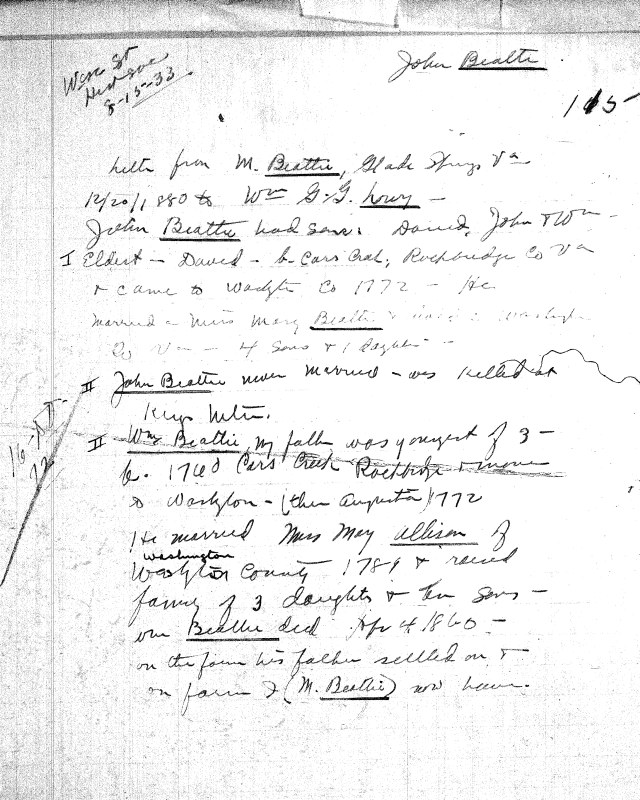 John Beattie.
Wisc St
Hist Soc
8-15-33.
115
Letter from M. Beattie, Glade Springs Va
12/20/1880 to Wm G. G. Lowry -
John Beattie had sons: David, John & Wm -
I Eldest - David - b Cars Crk; Rockbridge Co Va
& came to Co 1772 - He
married a Miss Mary Beattie & in
Co Va - 4 sons & 1 daughter -
II John Beattie never married - was killed at
Kings Mtn.
II Wm Beattie, my father was youngest of 3 -
b. 1760 Cars Creek Rockbridge & move
to Washgton - (then Augusta) 1772
He married Miss Mary Allison of
Washington
County 1789 & raised
family of 3 daughts & ten sons -
Wm Beattie died Apr 4 1860 -
on the farm his father settled on &
on farm I (M. Beattie) now have.
16-
22